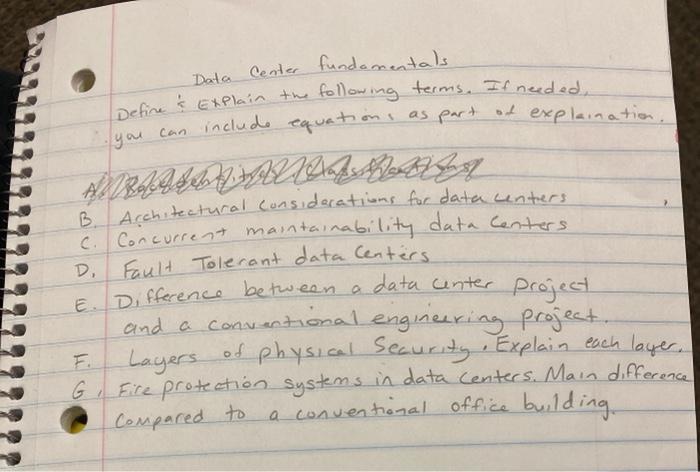 Data Center fundamentals
Define & Explain the following terms. If needed,
you can include equations as part of explaination.
A.
B. Architectural considerations for data centers
C. Concurrent maintainability data centers
D. Fault Tolerant data centers
E. Difference between a data center project
and a conventional engineering project.
F. Layers of physical Security. Explain each layer.
G. Fire protection systems in data centers. Main difference
compared to a conventional office building.